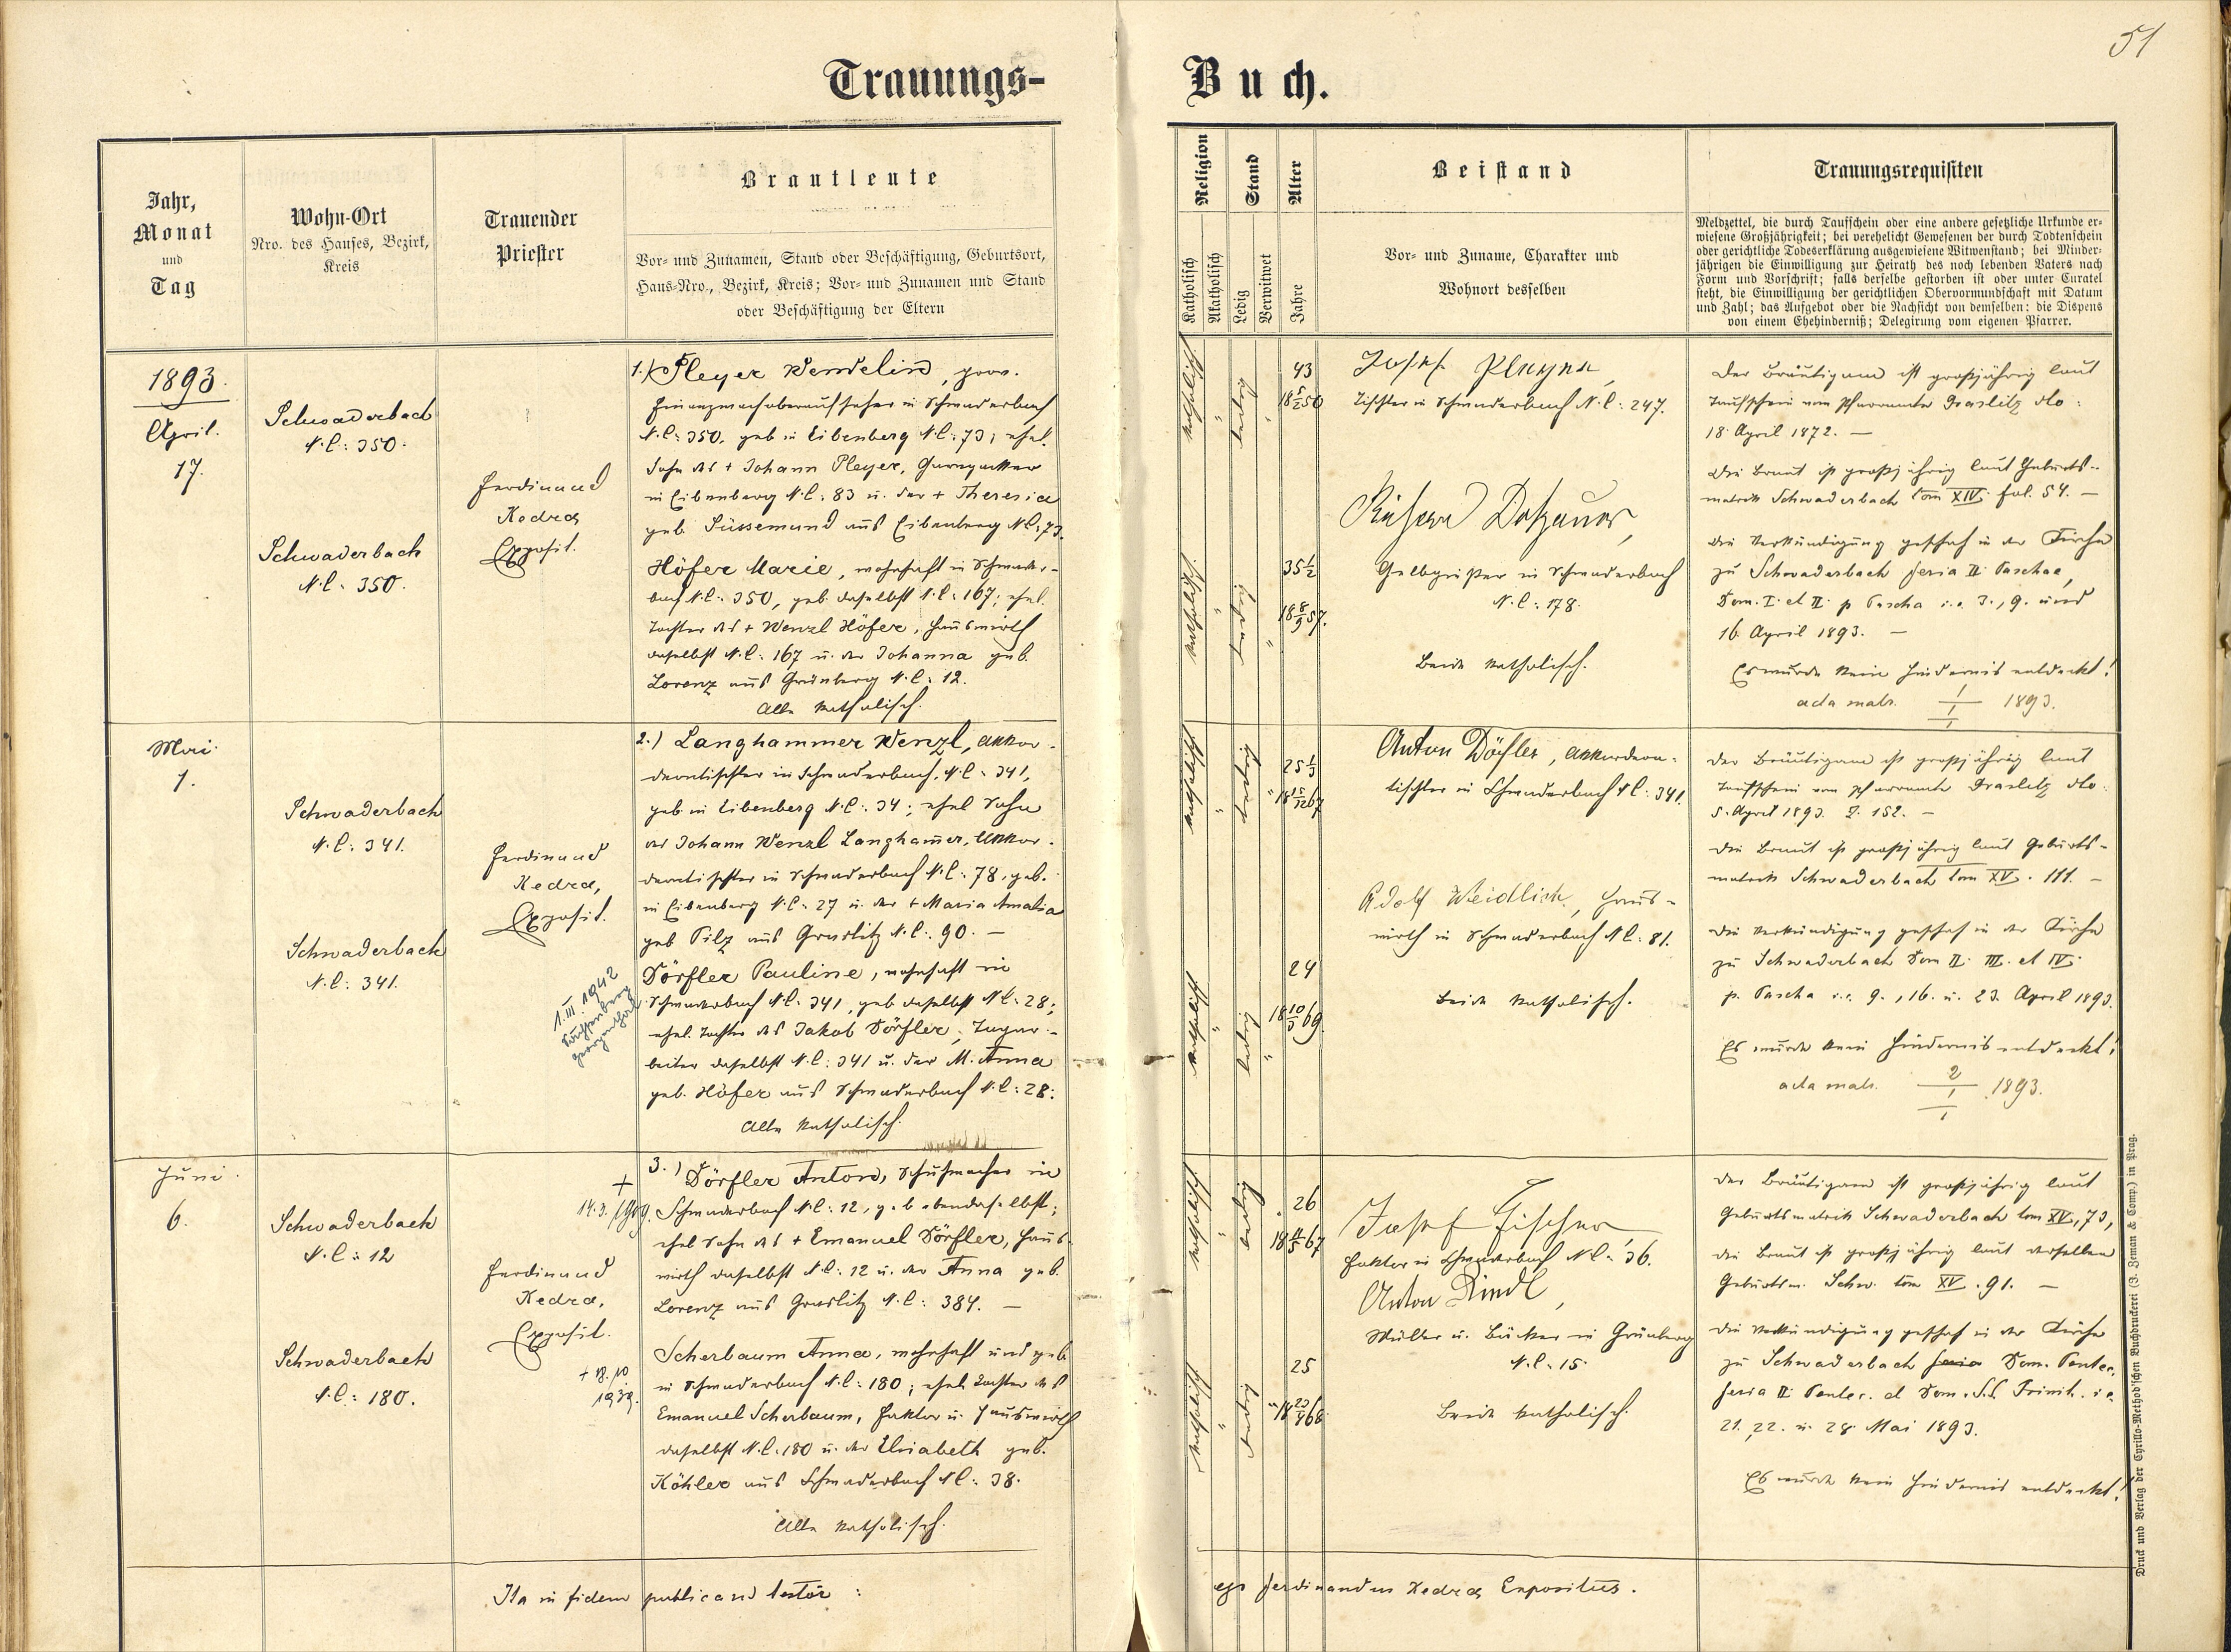 51
Trauungs-Buch.
Jahr,
Monat
und
Tag
Wohn-Ort
Nro. des Hauses, Bezirk,
Kreis
Trauender
Priester
Brautleute
Vor- und Zunamen, Stand oder Beschäftigung, Geburtsort,
Haus-Nro., Bezirk, Kreis; Vor- und Zunamen und Stand
oder Beschäftigung der Eltern
Religion
Katholisch
Akatholisch
Stand
Ledig
Verwitwet
Alter
Jahre
Beistand
Vor- und Zuname, Charakter und
Wohnort desselben
Trauungsrequisiten
Meldzettel, die durch Taufschein oder eine andere gesetzliche Urkunde er-
wiesene Großjährigkeit; bei verehelicht Gewesenen der durch Todtenschein
oder gerichtliche Todeserklärung ausgewiesene Witwenstand; bei Minder-
jährigen die Einwilligung zur Heirath des noch lebenden Vaters nach
Form und Vorschrift; falls derselbe gestorben ist oder unter Curatel
steht, die Einwilligung der gerichtlichen Obervormundschaft mit Datum
und Zahl; das Aufgebot oder die Nachsicht von demselben: die Dispens
von einem Ehehinderniß; Delegirung vom eigenen Pfarrer.
1893.
April.
17.
Schwaderbach
N.C: 350.
Schwaderbach
N.C: 350.
Ferdinand
Kedra
Exposit.
1.) Pleyer Wendelin, prov.
Finanzwachoberaufseher in Schwaderbach
N.C: 350, geb in Eibenberg N.C: 73; ehel.
Sohn des + Johann Pleyer,
in Eibenberg N.C: 83 u. der + Theresia
geb. Süssemund aus Eibenberg N.C: 73.
Höfer Marie, wohnhaft in Schwader-
bach N.C: 350, geb. daselbst N.C: 167; ehel.
Tochter des + Wenzl Höfer, Hauswirth
daselbst N.C: 167 u. der Johanna geb.
Lorenz aus Grünberg N.C: 12.
Alle katholisch.
katholisch
ledig
43
18 5/2 50
katholisch
ledig
35 1/2
18 8/9 57.
Josef Pleyer,
Tischler in Schwaderbach N.C: 247.
Richard Dotzauer,
Gelbgießer in Schwaderbach
N.C: 178.
Beide katholisch.
Der Bräutigam ist großjährig laut
Taufschein vom Pfarramte Graslitz dto:
18. April 1872. —
Die Braut ist großjährig laut Geburts-
matrik Schwaderbach tom XIV. fol. 54. —
Die Verkündigung geschah in der Kirche
zu Schwaderbach feria II. Paschae,
Dom. I. et II. p Pascha i.e. 3., 9. und
16. April 1893. —
Es wurde kein Hindernis entdeckt!
acta matr. 1/1 1893.
Mai
1.
Schwaderbach
N.C: 341.
Schwaderbach
N.C: 341.
Ferdinand
Kedra,
Exposit.
2.) Langhammer Wenzl, Akkor-
deontischler in Schwaderbach, N.C: 341,
geb. in Eibenberg N.C: 34; ehel Sohn
des Johann Wenzl Langham̄er, Akkor-
deontischler in Schwaderbach N.C: 78, geb.
in Eibenberg N.C: 27 u. der + Maria Amalia
geb Pilz aus Graslitz N.C: 90. —
Dörfler Pauline, wohnhaft in
Schwaderbach N.C: 341, geb daselbst N.C: 28;
ehel. Tochter des Jakob Dörfler, Zeugar-
beiter daselbst N.C: 341 u. der M. Anna
geb. Höfer aus Schwaderbach N.C: 28.
Alle katholisch.
1.III.1942
Georgenthal
katholisch
ledig
25 1/3
18 15/12 67
katholisch
ledig
24
18 10/3 69.
Anton Dörfler, Akkordeon-
tischler in Schwaderbach N.C: 341.
Adolf Weidlich, Haus-
wirth in Schwaderbach N.C: 81.
Beide katholisch.
Der Bräutigam ist großjährig laut
Taufschein vom Pfarramte Graslitz dto.
5. April 1893. Z. 152. —
Die Braut ist großjährig laut Geburts-
matrik Schwaderbach tom XV. 111. —
Die Verkündigung geschah in der Kirche
zu Schwaderbach Dom II. III. et IV.
p. Pascha i.e. 9., 16. u. 23. April 1893.
Es wurde kein Hindernis entdeckt!
acta matr. 2/1 1893.
Juni
6.
Schwaderbach
N.C: 12
Schwaderbach
N.C: 180.
Ferdinand
Kedra,
Exposit.
3.) Dörfler Anton, Schuhmacher in
Schwaderbach N.C: 12, geb ebendaselbst;
ehel Sohn des + Emanuel Dörfler, Haus-
wirth daselbst N.C: 12 u. der Anna geb.
Lorenz aus Graslitz N.C: 384. —
Scherbaum Anna, wohnhaft und geb.
in Schwaderbach N.C: 180; ehel. Tochter des
Emanuel Scherbaum, Faktor u. Hauswirth
daselbst N.C: 180 u. der Elisabeth geb.
Köhler aus Schwaderbach N.C: 38.
Alle katholisch.
+
+ 18./10
1939.
katholisch
ledig
26
katholisch
ledig
25
Josef Fischer
Faktor in Schwaderbach N.C: 36.
Anton Riedl,
Müller u. Bäcker in Grünberg
N.C: 15.
Beide katholisch.
Der Bräutigam ist großjährig laut
Geburtsmatrik Schwaderbach tom XV, 73,
die Braut ist großjährig laut derselben
Geburtsm. Schw. tom XV. 91. —
Die Verkündigung geschah in der Kirche
zu Schwaderbach feria Dom. Pentec.
feria II Pentec. et Dom. S.S. Trinit. i.e.
21., 22. u. 28. Mai 1893.
Es wurde kein Hindernis entdeckt!
Ita in fidem publicand testor: ego Ferdinandus Kedra Expositus.
Druck und Verlag der Cyrillo-Method'schen Buchdruckerei (J. Zeman & Comp.) in Prag.